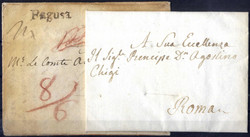 Ragusa
Mr. Le Comte A
8/6
A Sua Eccellenza
Il Sigr. Principe Dn. Agostino
Chigi
Roma